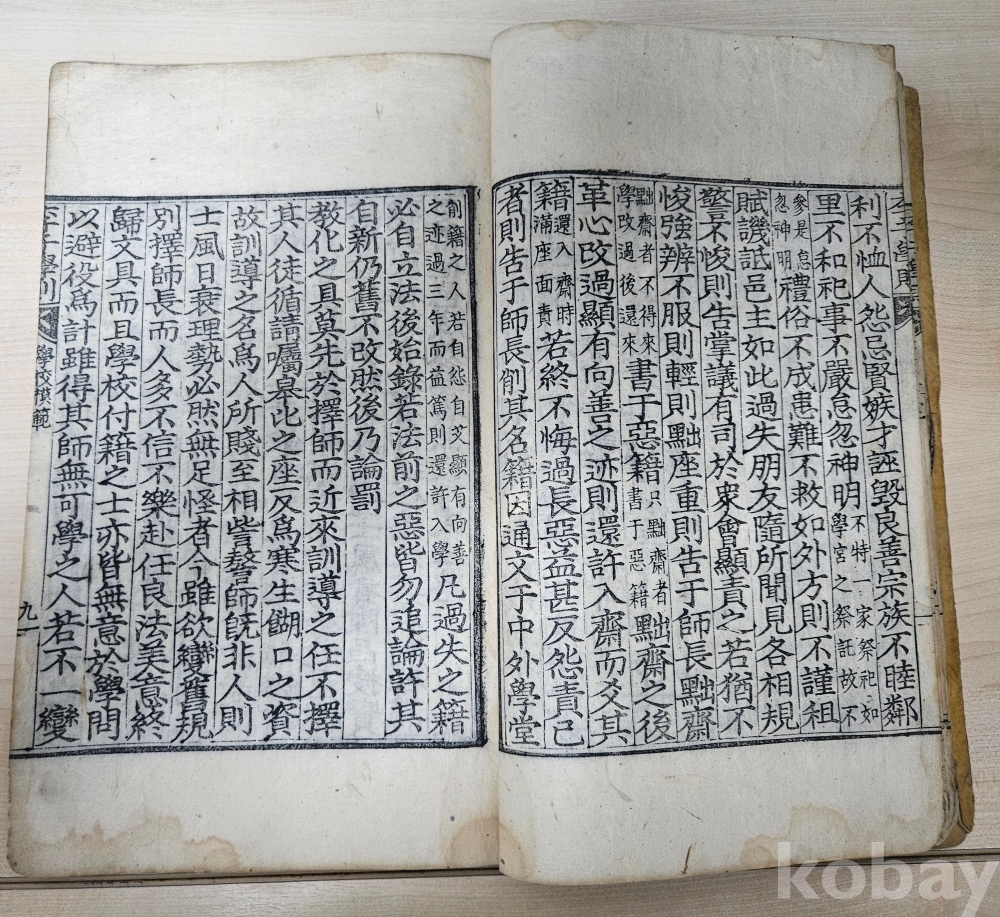 利不恤人怨忌賢嫉才誣毀良善宗族不睦鄰
里不和祀事不嚴怠忽神明不特一家祭祀如學宮之祭託故不
參是怠忽神明禮俗不成患難不救如外方則不謹租
賦譏詆邑主如此過失朋友隨所聞見各相規
警不悛則告掌議有司於衆會顯責之若猶不
悛強辨不服則輕則黜座重則告于師長黜齋
黜齋者不得來學改過後還來書于惡籍只黜齋者書于惡籍黜齋之後
革心改過顯有向善之迹則還許入齋而爻其
籍還入齋時滿座面責若終不悔過長惡益甚反怨責己
者則告于師長削其名籍因通文于中外學堂
削籍之人若自怨自艾顯有向善之迹過三年而益篤則還許入學凡過失之籍
必自立法後始錄若法前之惡皆勿追論許其
自新仍舊不改然後乃論罰
教化之具莫先於擇師而近來訓導之任不擇
其人徒循請囑臯比之座反爲寒生餬口之資
故訓導之名爲人所賤至相訾警師旣非人則
士風日衰理勢必然無足怪者今雖欲變舊規
別擇師長而人多不信不樂赴任良法美意終
歸文具而且學校付籍之士亦皆無意於學問
以避役爲計雖得其師無可學之人若不一變
學校模範
九
kobay